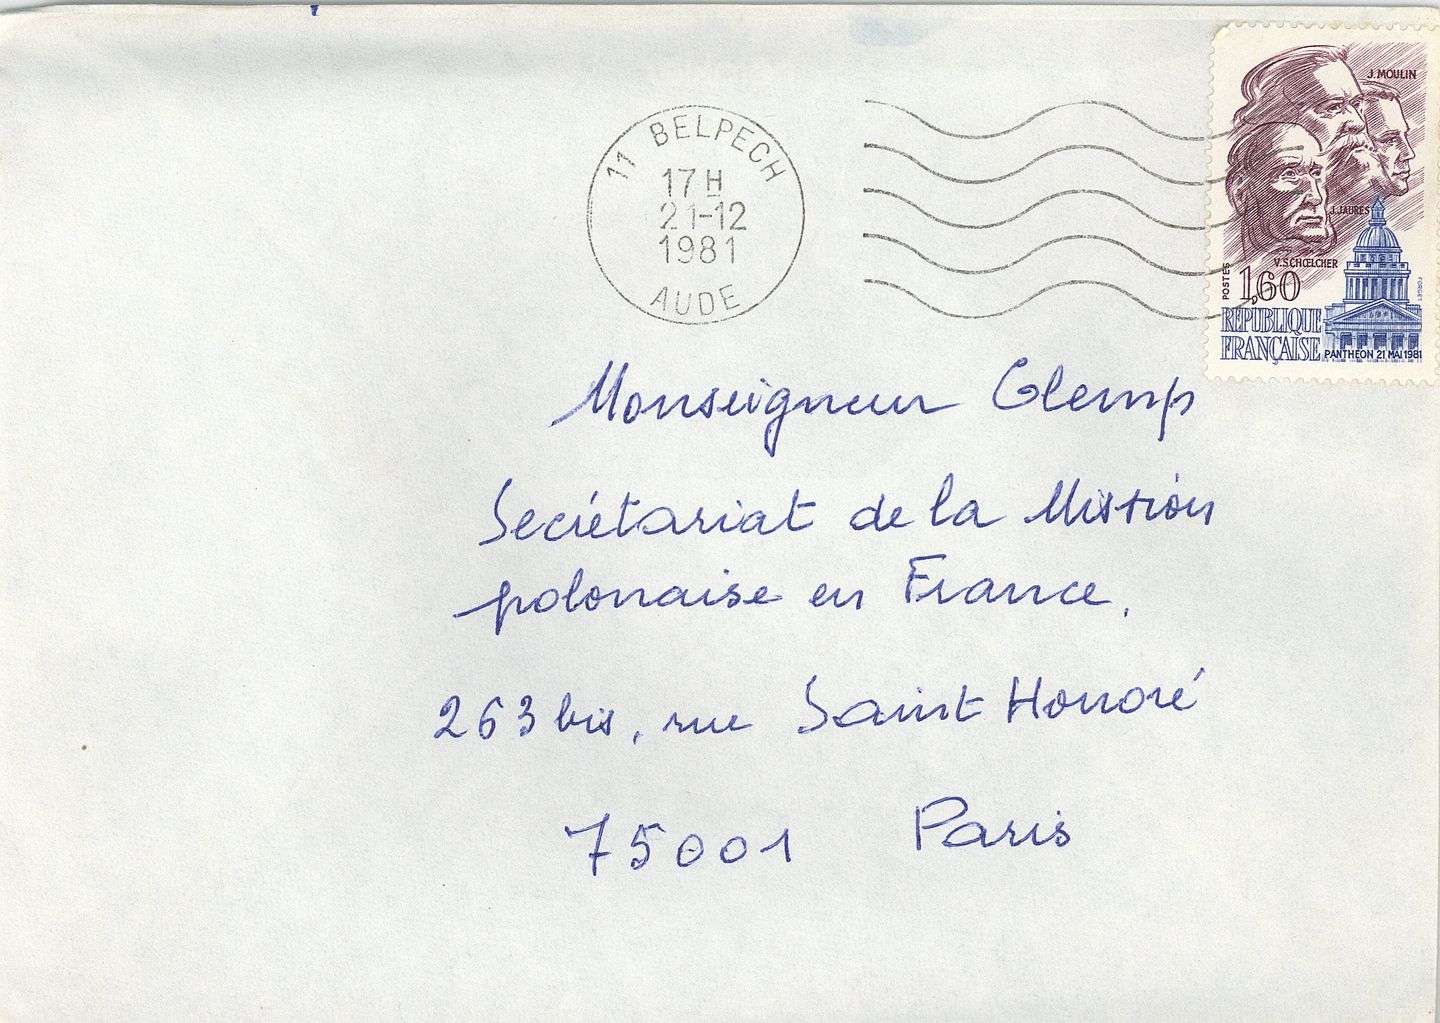 11 BELPECH
17 H
21-12
1981
AUDE
J. MOULIN
J. JAURES
V. SCHŒLCHER
POSTES
1,60
FORGET
RÉPUBLIQUE
FRANÇAISE
PANTHEON 21 MAI 1981
Monseigneur Glemp
Secrétariat de la Mission
polonaise en France.
263 bis, rue Saint Honoré
75001 Paris